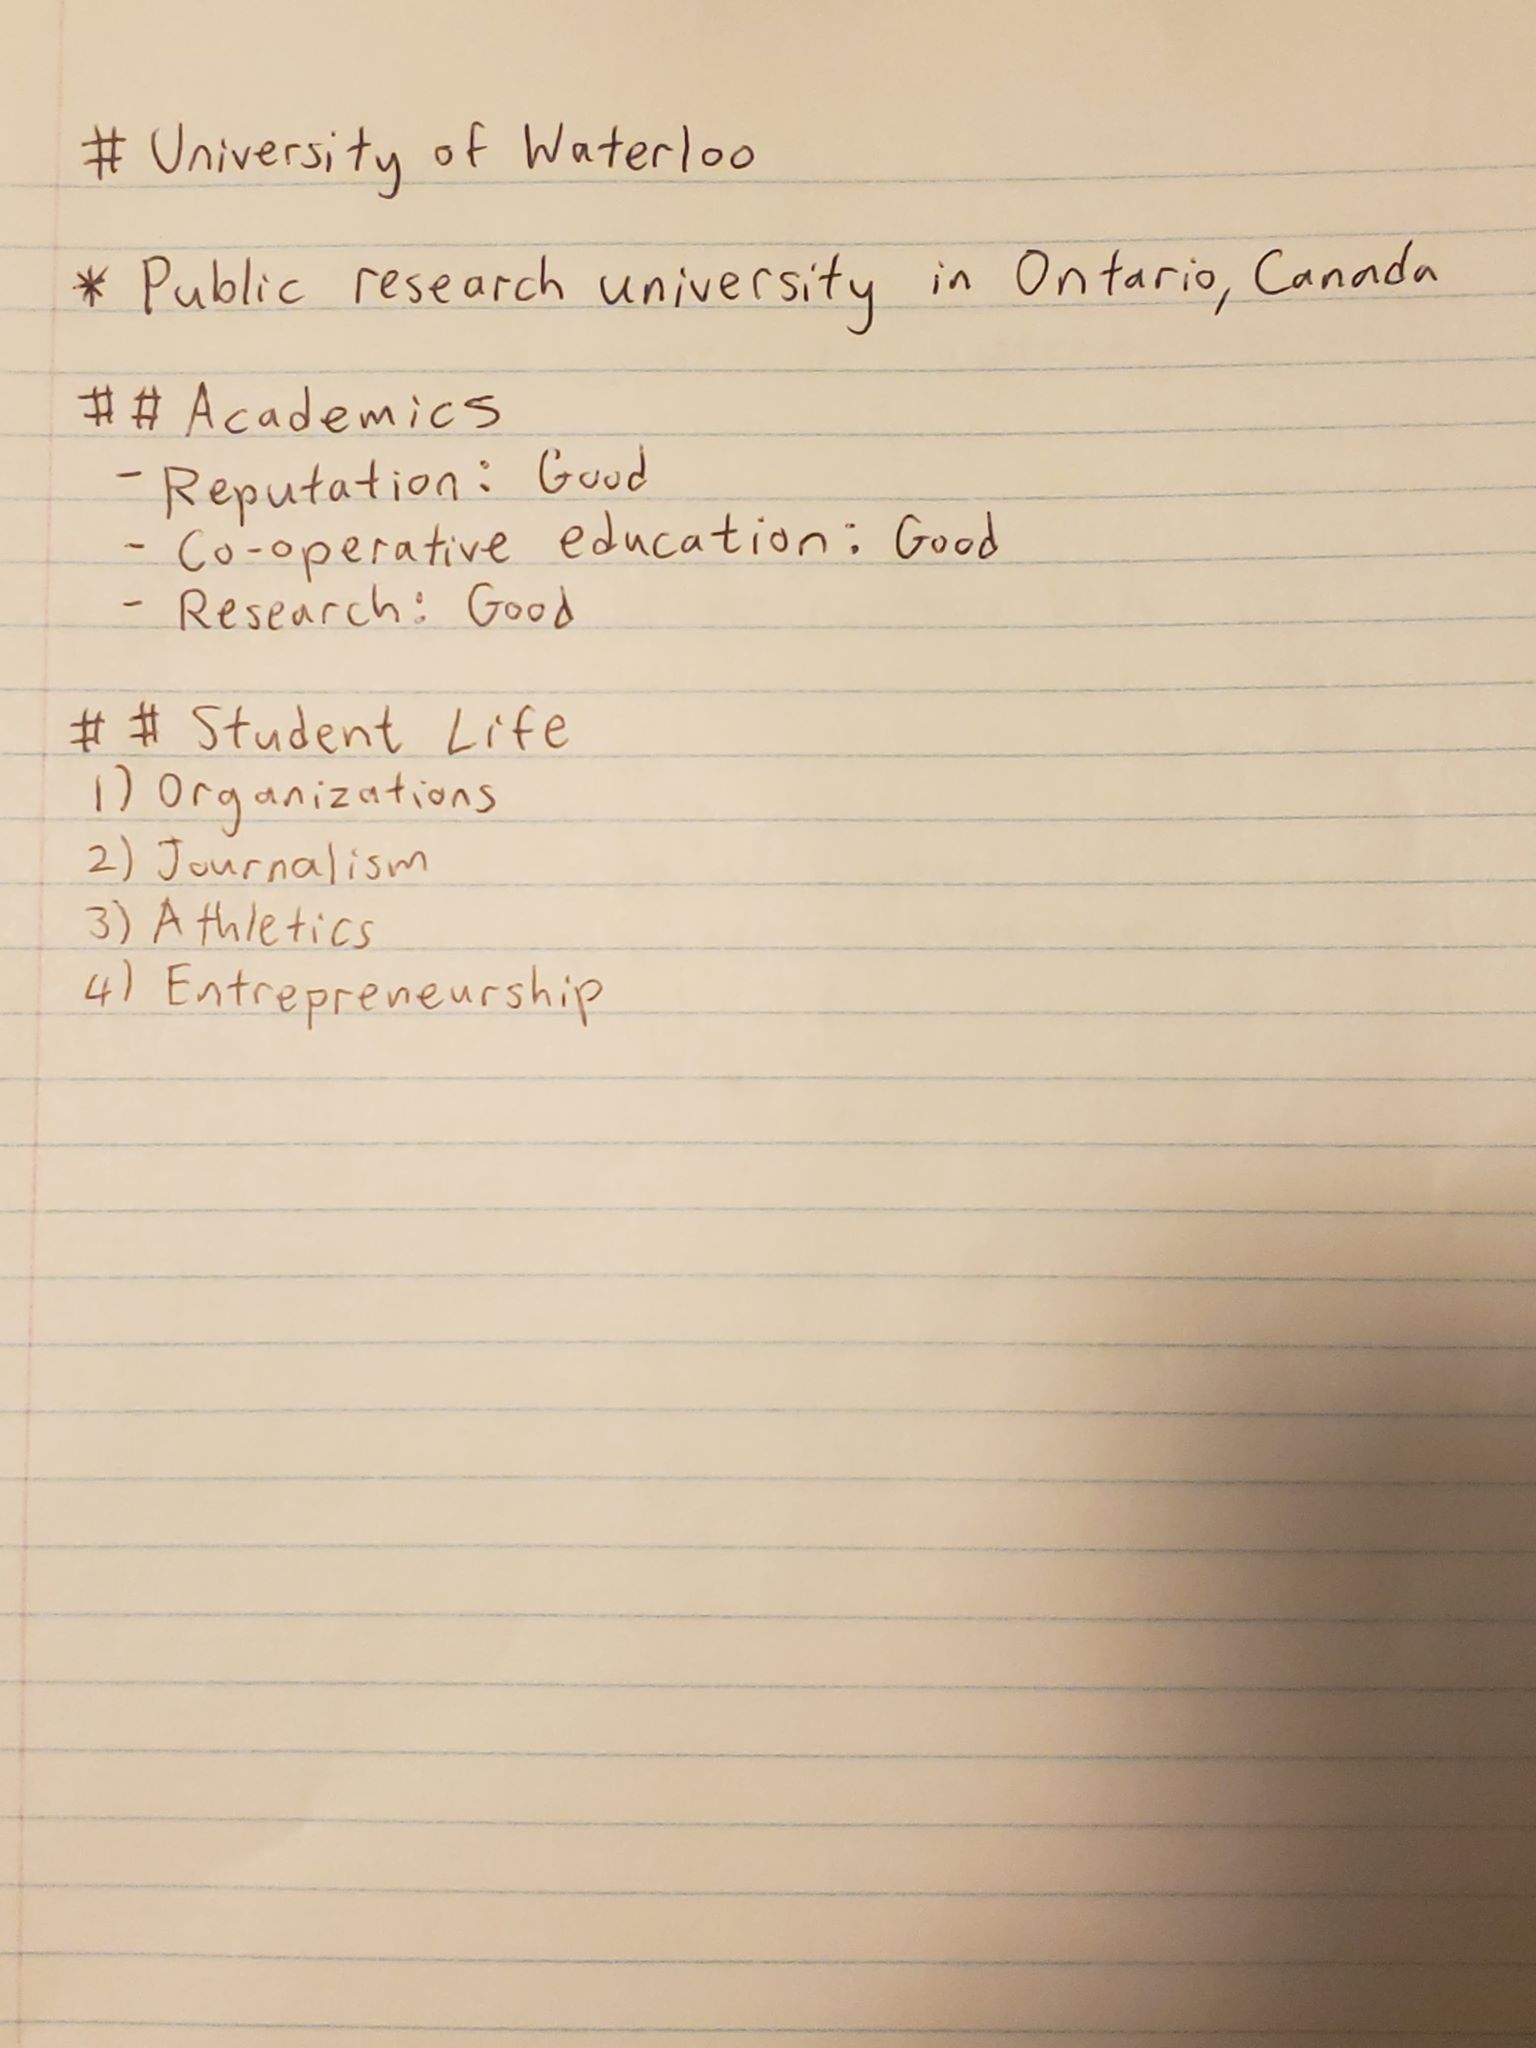 # University of Waterloo
* Public research university in Ontario, Canada
## Academics
- Reputation: Good
- Co-operative education: Good
- Research: Good
## Student Life
1) Organizations
2) Journalism
3) Athletics
4) Entrepreneurship